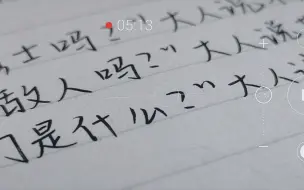 05:13
士吗?”大人说
敌人吗?”大人说
们是什么?”大人说